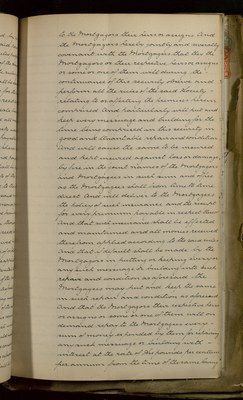 to the Mortgagors their heirs or assigns And
the Mortgagors hereby jointly and severally
covenant with the Mortgagees that they the
Mortgagors or their respective heirs or assigns
or some or one of them will during the
continuance of this security observe and
perform all the rules of the said Society
relating to or affecting the premises herein
comprised And particularly will put and
keep every messuage and building for the
time being comprised in this security in
good and tenantable repair and condition
And will cause the same to be insured
and kept insured against loss or damage
by fire in the joint names of the Mortgagors
and Mortgagees in such sum and
as the Mortgagees shall from time to time
direct And will deliver to the Mortgagees
the policy of such insurance and the receipt
for every premium payable in respect thereof
And that such insurance shall be effected
and maintained and all monies received
therefrom applied according to the said rules
And that if default shall be made by the
Mortgagors in putting or keeping every or
any such messuage or building into such
repair and condition as aforesaid the
Mortgagees may put and keep the same
in such repair and condition as aforesaid
And that the Mortgagors their respective heirs
or assigns or some or one of them will on
demand repay to the Mortgagees every
sum of money expended by them for repairing
any such messuage or building with
interest at the rate of five pounds per centum
per annum from the time of the same being